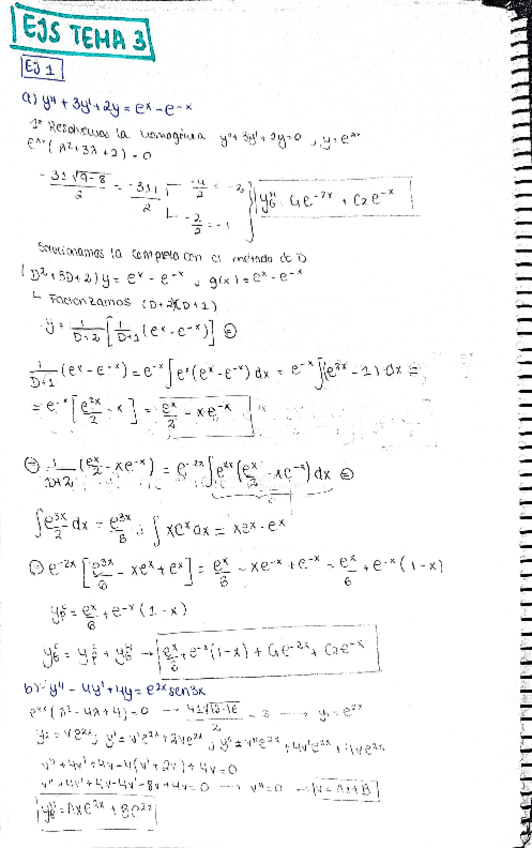 EJS TEMA 3
EJ 1
a) y'' + 3y' + 2y = e^x - e^-x
1º Resolvemos la homogénea y'' + 3y' + 2y = 0, y = e^λx
e^λx (λ² + 3λ + 2) = 0
-3 ± √9-8 / 2 = -3 ± 1 / 2 -4/2 = -2, -2/2 = -1 y_G^H = C1e^-2x + C2e^-x
Solucionamos la completa con el método de D
(D² + 3D + 2) y = e^x - e^-x, g(x) = e^x - e^-x
Factorizamos (D+2)(D+1)
y = 1/D+2 [1/D+1 (e^x - e^-x)] =
1/D+1 (e^x - e^-x) = e^-x ∫ e^x (e^x - e^-x) dx = e^-x ∫ (e^2x - 1) dx =
= e^-x [e^2x/2 - x] = e^x/2 - xe^-x
= 1/D+2 (e^x/2 - xe^-x) = e^-2x ∫ e^2x (e^x/2 - xe^-x) dx =
∫ e^3x/2 dx = e^3x/6, ∫ xe^x dx = xe^x - e^x
= e^-2x [e^3x/6 - xe^x + e^x] = e^x/6 - xe^-x + e^-x = e^x/6 + e^-x (1-x)
y_P^C = e^x/6 + e^-x (1-x)
y_G^C = y_P^C + y_G^H → e^x/6 + e^-x (1-x) + C1e^-2x + C2e^-x
b) y'' - 4y' + 4y = e^2x sen3x
(λ² - 4λ + 4) = 0 → 4 ± √16-16 / 2 → y1 = e^2x
y2 = ve^2x, y' = v'e^2x + 2ve^2x, y'' = v''e^2x + 4v'e^2x + 4ve^2x
v'' + 4v' + 4v - 4(v' + 2v) + 4v = 0
v'' + 4v' + 4v - 4v' - 8v + 4v = 0 → v'' = 0 → v = Ax + B
y_G^H = Axe^2x + Be^2x